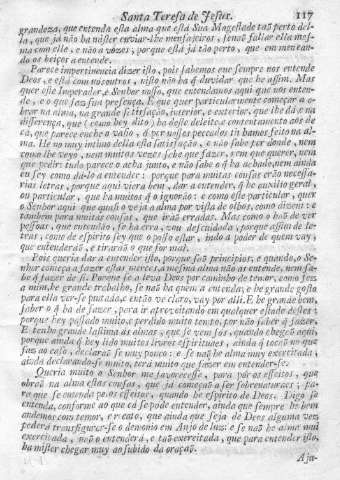 Santa Teresa de Jesus. 117
grandeza, que entenda esta alma que està Sua Magestade taõ perto del-
la, que já naõ ha mister enviar-lhe mensageiros, senaõ fallar ella mes-
ma com elle, e naõ a vózes, porque está já taõ perto, que em menean-
do os beiços a entende.
Parece impertinencia dizer isto, pois sabemos que sempre nos entende
Deos, e está com nosoutros, nisto naõ ha q̃ duvidar que he assim. Mas
quer este Imperador, e Senhor nosso, que entendamos aqui que nos enten-
de, e o que faz sua presença. E que quer particularmente começar a o-
brar na alma, na grande satisfaçaõ, interior, e exterior, que lhe dá, e na
differença, que (como hey dito) ha deste deleite, e contentamento aos de
cá, que parece enche o vasio, q̃ por nossos peccados tinhamos feito na al-
ma. He no muy intimo della esta satisfaçaõ, e naõ sabe por donde, nem
como lhe veyo, nem muitas vezes sabe que fazer, nem que querer, nem
que pedir: tudo parece o acha junto, e naõ sabe o q̃ ha achado, nem ainda
eu sey como dá-lo a entender: porque para muitas cousas eraõ necessa-
rias letras, porque aqui viera bem, dar a entender, q̃ he auxilio geral,
ou particular, que ha muitos q̃ o ignoraõ: e como este particular, quer
o Senhor aqui que quasi o veja a alma por vista de olhos, como dizem: e
tambem para muitas cousas, que iráõ erradas. Mas como o haõ de ver
pessoas, que entendaõ, se ha erro, vou descuidada, porque assim de le-
tras, como de espirito sey que o posso estar, indo a poder de quem vay;
que entenderáõ, e tiraráõ o que for mal.
Pois queria dar a entender isto, porque saõ principios, e quando o Se-
nhor começa a fazer estas merces, a mesma alma naõ as entende, nem sa-
be q̃ fazer de si. Porque se a leva Deos por caminho de temor, como fez
a mim, he grande trabalho, se naõ ha quem a entenda, e he grande gosto
para ella ver-se pintada, e entaõ ve claro, vay por alli. E he grande bem,
saber o q̃ ha de fazer, para ir aproveitando em qualquer estado destes:
porque hey passado muito, e perdido muito tempo, por naõ saber q̃ fazer.
E tenho grande lastima a almas, que se vem sós, quando chegaõ aqui,
porque ainda q̃ hey lido muitos livros espirituaes, ainda q̃ tocaõ no que
faz ao caso, declaraõ se muy pouco: e se naõ he alma muy exercitada,
ainda declarando-se muito, terá muito que fazer em entender-se.
Queria muito o Senhor me favorecesse, para pôr os effeitos, que
obraõ na alma estas cousas, que já começaõ a ser sobrenaturaes; pa-
ra que se entenda pelos effeitos, quando he espirito de Deos. Digo se
entenda, conforme ao que cá se póde entender, ainda que sempre he bem
andemos com temor, e recato, que ainda que seja de Deos alguma vez
poderá transfigurar-se o demonio em Anjo de luz: e se naõ he alma mui
exercitada, naõ o entenderá, e taõ exercitada, que para entender isto,
ha mister chegar muy ao subido da oraçaõ.
Aju-